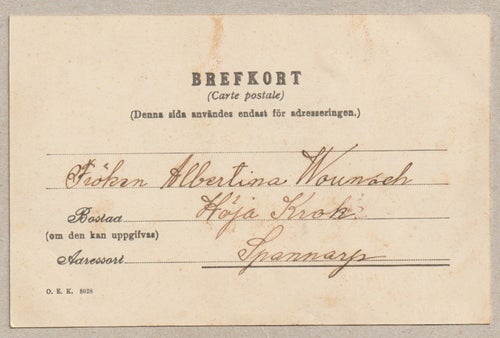 BREFKORT
(Carte postale)
(Denna sida användes endast för adresseringen.)
Fröken Albertina
Bostad Höja Krok
(om den kan uppgifvas)
Adressort Spannarp
O. E. K. 8028